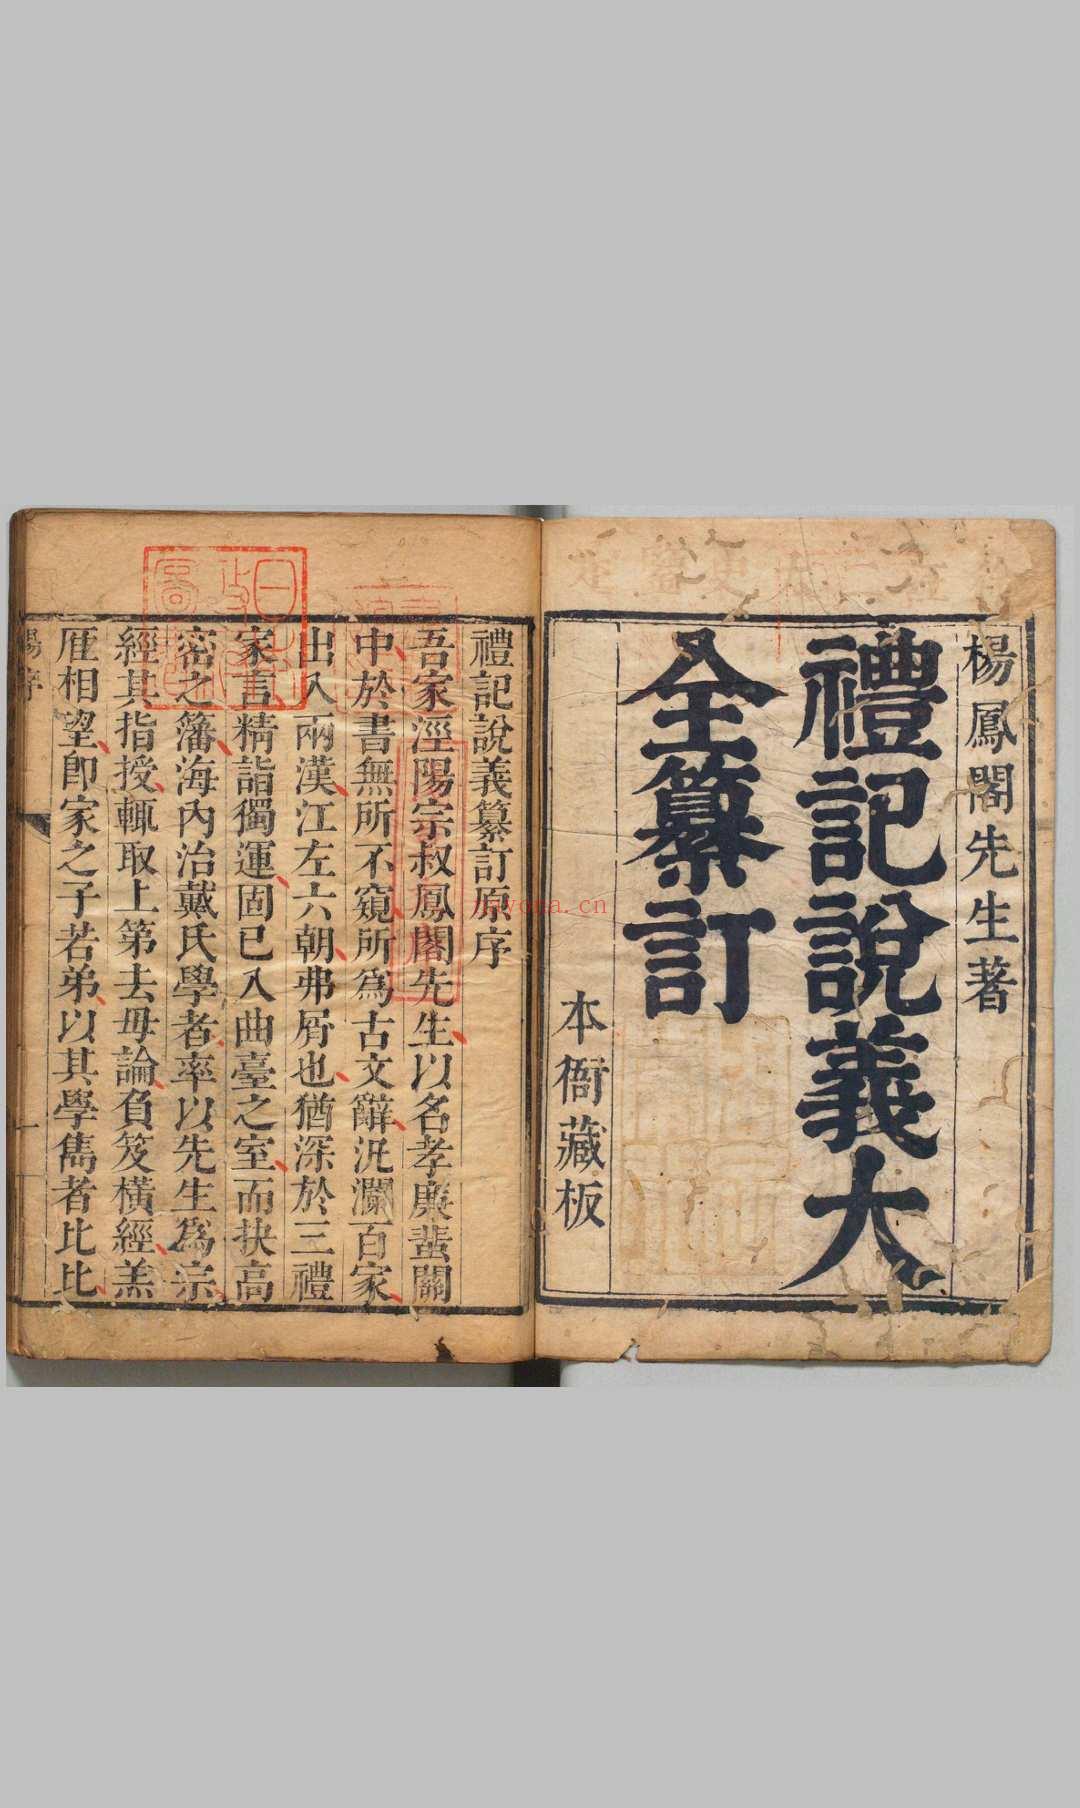 楊鳳閣先生著
禮記說義大
全纂訂
本衙藏板
禮記說義纂訂原序
吾家涇陽宗叔鳳閣先生以名孝廉蜚關
中於書無所不窺所爲古文辭汎瀾百家
出入兩漢江左六朝弗屑也猶深於三禮
家言精詣獨運固已入曲臺之室而抉高
密之籓海內治戴氏學者率以先生爲宗
經其指授輒取上第去毋論負笈橫經羔
厓相望卽家之子若弟以其學雋者比比
楊序
一
nayona.cn